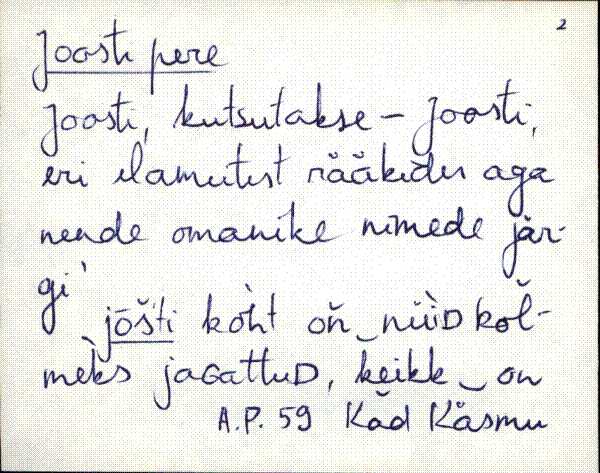 2
Joosti pere
Joosti, kutsutakse – Joosti,
eri elamutest rääkides aga
nende omanike nimede jär-
gi
jò̄šťi kòht oň‿nüìD kol̆-
mèks jaGattuD, keikk‿on
A.P. 59 Kad Käsmu